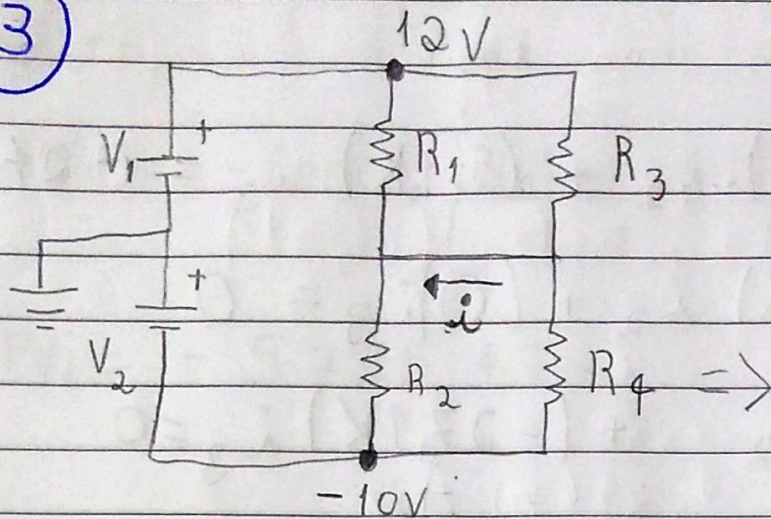 3
12V
V1
+
R1
R3
+
i
V2
R2
R4 =>
-10V